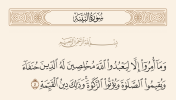 سُورَةُ البَيِّنَةِ
بِسْمِ اللَّهِ الرَّحْمَٰنِ الرَّحِيمِ
وَمَا أُمِرُوٓا۟ إِلَّا لِيَعْبُدُوا۟ ٱللَّهَ مُخْلِصِينَ لَهُ ٱلدِّينَ حُنَفَآءَ
وَيُقِيمُوا۟ ٱلصَّلَوٰةَ وَيُؤْتُوا۟ ٱلزَّكَوٰةَ وَذَٰلِكَ دِينُ ٱلْقَيِّمَةِ ٥